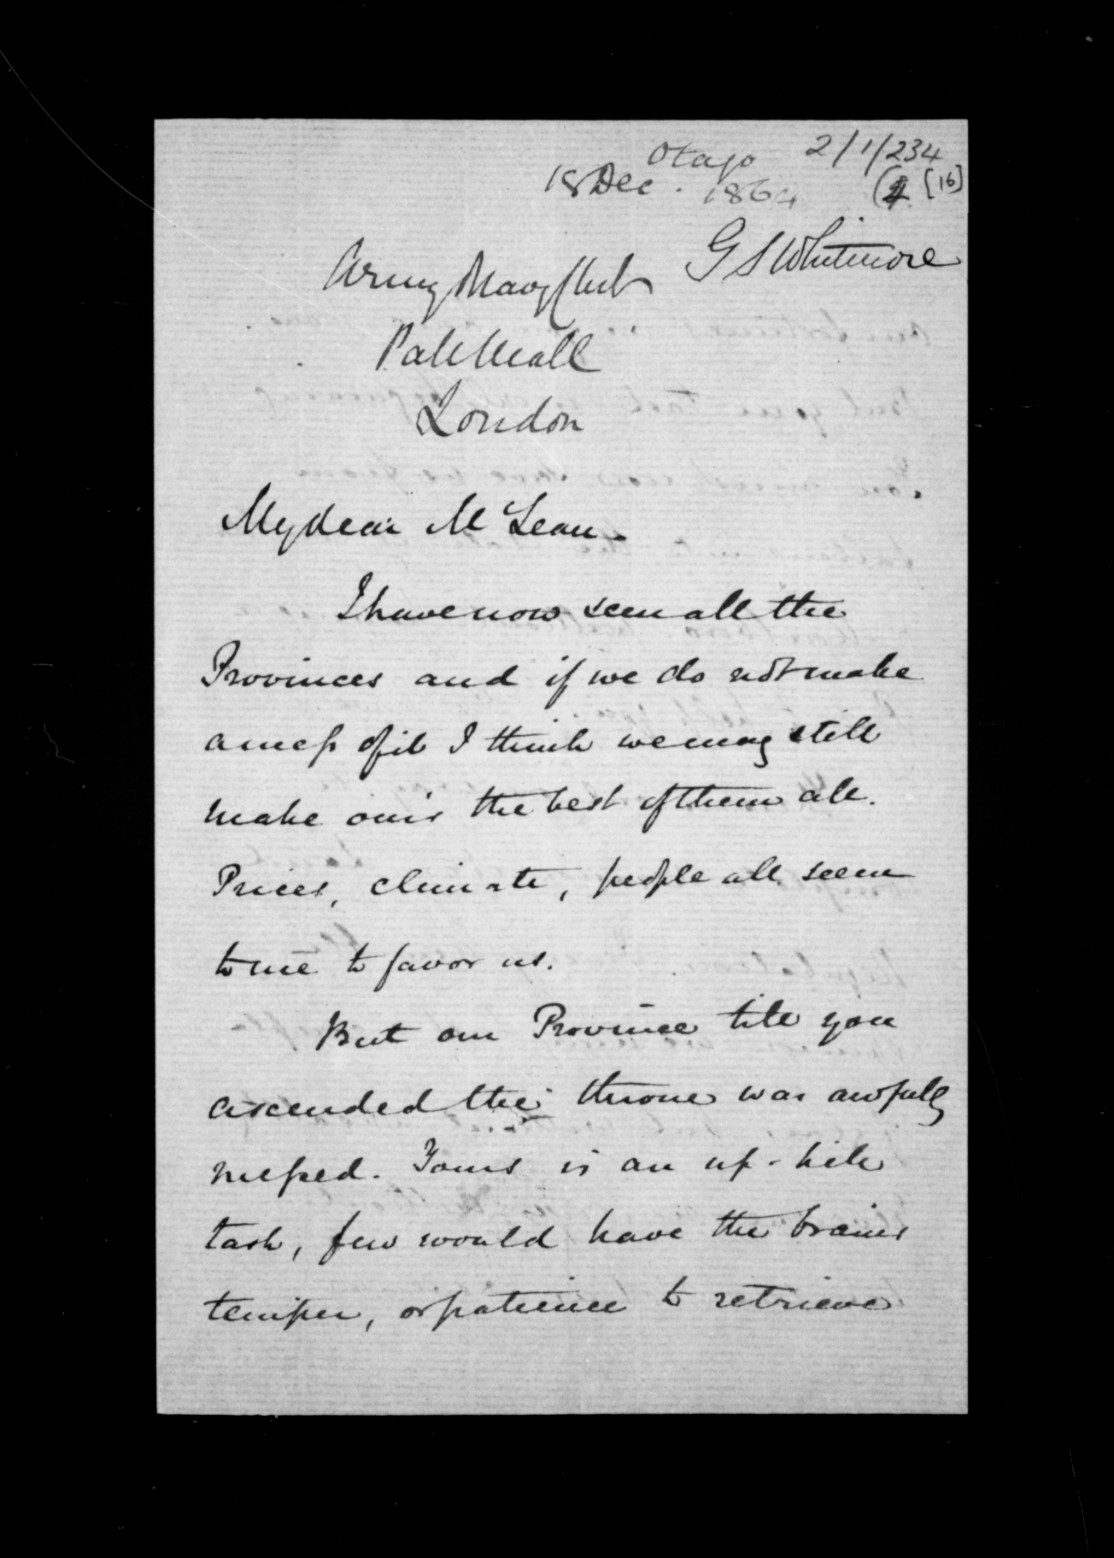 Otago 2/1/234
18 Dec. 1864 (4 [16]
G S Whitmore
Army Navy Club
Pall Mall
London
My dear McLean.
I have now seen all the
Provinces and if we do not make
a mess of it I think we may still
make ours the best of them all.
Prices, climate, people all seem
to me to favor us.
But our Province till you
ascended the throne was awfully
messed. Yours is an up-hill
task, few would have the brains
temper, or patience to retrieve